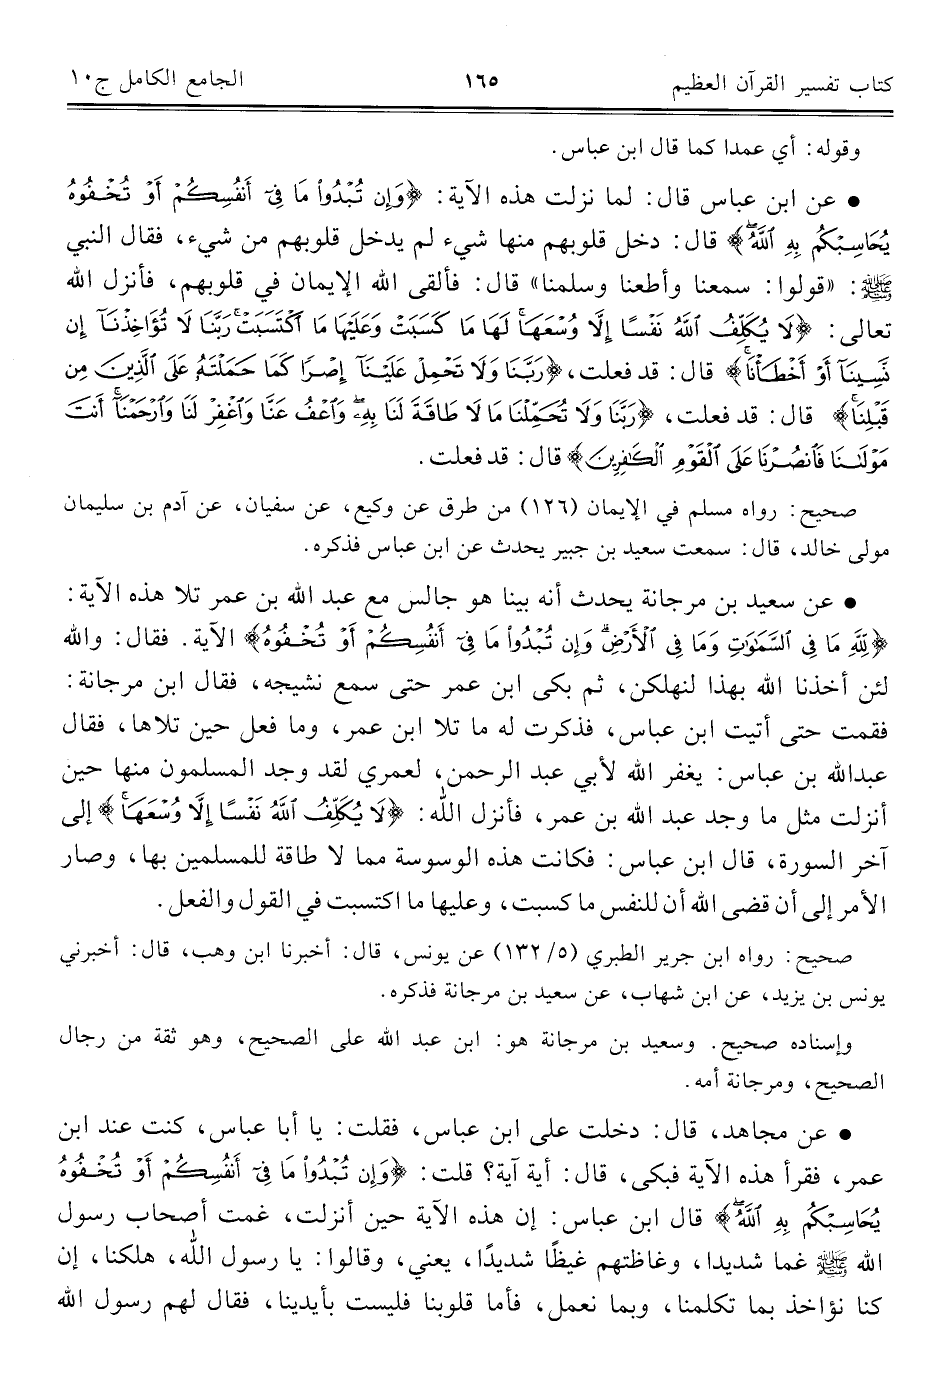 كتاب تفسير القرآن العظيم ١٦٥ الجامع الكامل ج١٠
وقوله: أي عمدا كما قال ابن عباس.
• عن ابن عباس قال: لما نزلت هذه الآية: ﴿وَإِن تُبْدُوا۟ مَا فِىٓ أَنفُسِكُمْ أَوْ تُخْفُوهُ
يُحَاسِبْكُم بِهِ ٱللَّهُ ۖ﴾ قال: دخل قلوبهم منها شيء لم يدخل قلوبهم من شيء، فقال النبي
ﷺ: «قولوا: سمعنا وأطعنا وسلمنا» قال: فألقى الله الإيمان في قلوبهم، فأنزل الله
تعالى: ﴿لَا يُكَلِّفُ ٱللَّهُ نَفْسًا إِلَّا وُسْعَهَا ۚ لَهَا مَا كَسَبَتْ وَعَلَيْهَا مَا ٱكْتَسَبَتْ ۗ رَبَّنَا لَا تُؤَاخِذْنَآ إِن
نَّسِينَآ أَوْ أَخْطَأْنَا ۚ﴾ قال: قد فعلت، ﴿رَبَّنَا وَلَا تَحْمِلْ عَلَيْنَآ إِصْرًا كَمَا حَمَلْتَهُۥ عَلَى ٱلَّذِينَ مِن
قَبْلِنَا ۚ﴾ قال: قد فعلت، ﴿رَبَّنَا وَلَا تُحَمِّلْنَا مَا لَا طَاقَةَ لَنَا بِهِۦ ۖ وَٱعْفُ عَنَّا وَٱغْفِرْ لَنَا وَٱرْحَمْنَآ ۚ أَنتَ
مَوْلَىٰنَا فَٱنصُرْنَا عَلَى ٱلْقَوْمِ ٱلْكَٰفِرِينَ﴾ قال: قد فعلت.
صحيح: رواه مسلم في الإيمان (١٢٦) من طرق عن وكيع، عن سفيان، عن آدم بن سليمان
مولى خالد، قال: سمعت سعيد بن جبير يحدث عن ابن عباس فذكره.
• عن سعيد بن مرجانة يحدث أنه بينا هو جالس مع عبد الله بن عمر تلا هذه الآية:
﴿لِّلَّهِ مَا فِى ٱلسَّمَٰوَٰتِ وَمَا فِى ٱلْأَرْضِ ۗ وَإِن تُبْدُوا۟ مَا فِىٓ أَنفُسِكُمْ أَوْ تُخْفُوهُ﴾ الآية. فقال: والله
لئن أخذنا الله بهذا لنهلكن، ثم بكى ابن عمر حتى سمع نشيجه، فقال ابن مرجانة:
فقمت حتى أتيت ابن عباس، فذكرت له ما تلا ابن عمر، وما فعل حين تلاها، فقال
عبدالله بن عباس: يغفر الله لأبي عبد الرحمن، لعمري لقد وجد المسلمون منها حين
أنزلت مثل ما وجد عبد الله بن عمر، فأنزل الله: ﴿لَا يُكَلِّفُ ٱللَّهُ نَفْسًا إِلَّا وُسْعَهَا ۚ﴾ إلى
آخر السورة، قال ابن عباس: فكانت هذه الوسوسة مما لا طاقة للمسلمين بها، وصار
الأمر إلى أن قضى الله أن للنفس ما كسبت، وعليها ما اكتسبت في القول والفعل.
صحيح: رواه ابن جرير الطبري (٥/ ١٣٢) عن يونس، قال: أخبرنا ابن وهب، قال: أخبرني
يونس بن يزيد، عن ابن شهاب، عن سعيد بن مرجانة فذكره.
وإسناده صحيح. وسعيد بن مرجانة هو: ابن عبد الله على الصحيح، وهو ثقة من رجال
الصحيح، ومرجانة أمه.
• عن مجاهد، قال: دخلت على ابن عباس، فقلت: يا أبا عباس، كنت عند ابن
عمر، فقرأ هذه الآية فبكى، قال: أية آية؟ قلت: ﴿وَإِن تُبْدُوا۟ مَا فِىٓ أَنفُسِكُمْ أَوْ تُخْفُوهُ
يُحَاسِبْكُم بِهِ ٱللَّهُ ۖ﴾ قال ابن عباس: إن هذه الآية حين أنزلت، غمت أصحاب رسول
الله ﷺ غما شديدا، وغاظتهم غيظًا شديدًا، يعني، وقالوا: يا رسول الله، هلكنا، إن
كنا نؤاخذ بما تكلمنا، وبما نعمل، فأما قلوبنا فليست بأيدينا، فقال لهم رسول الله